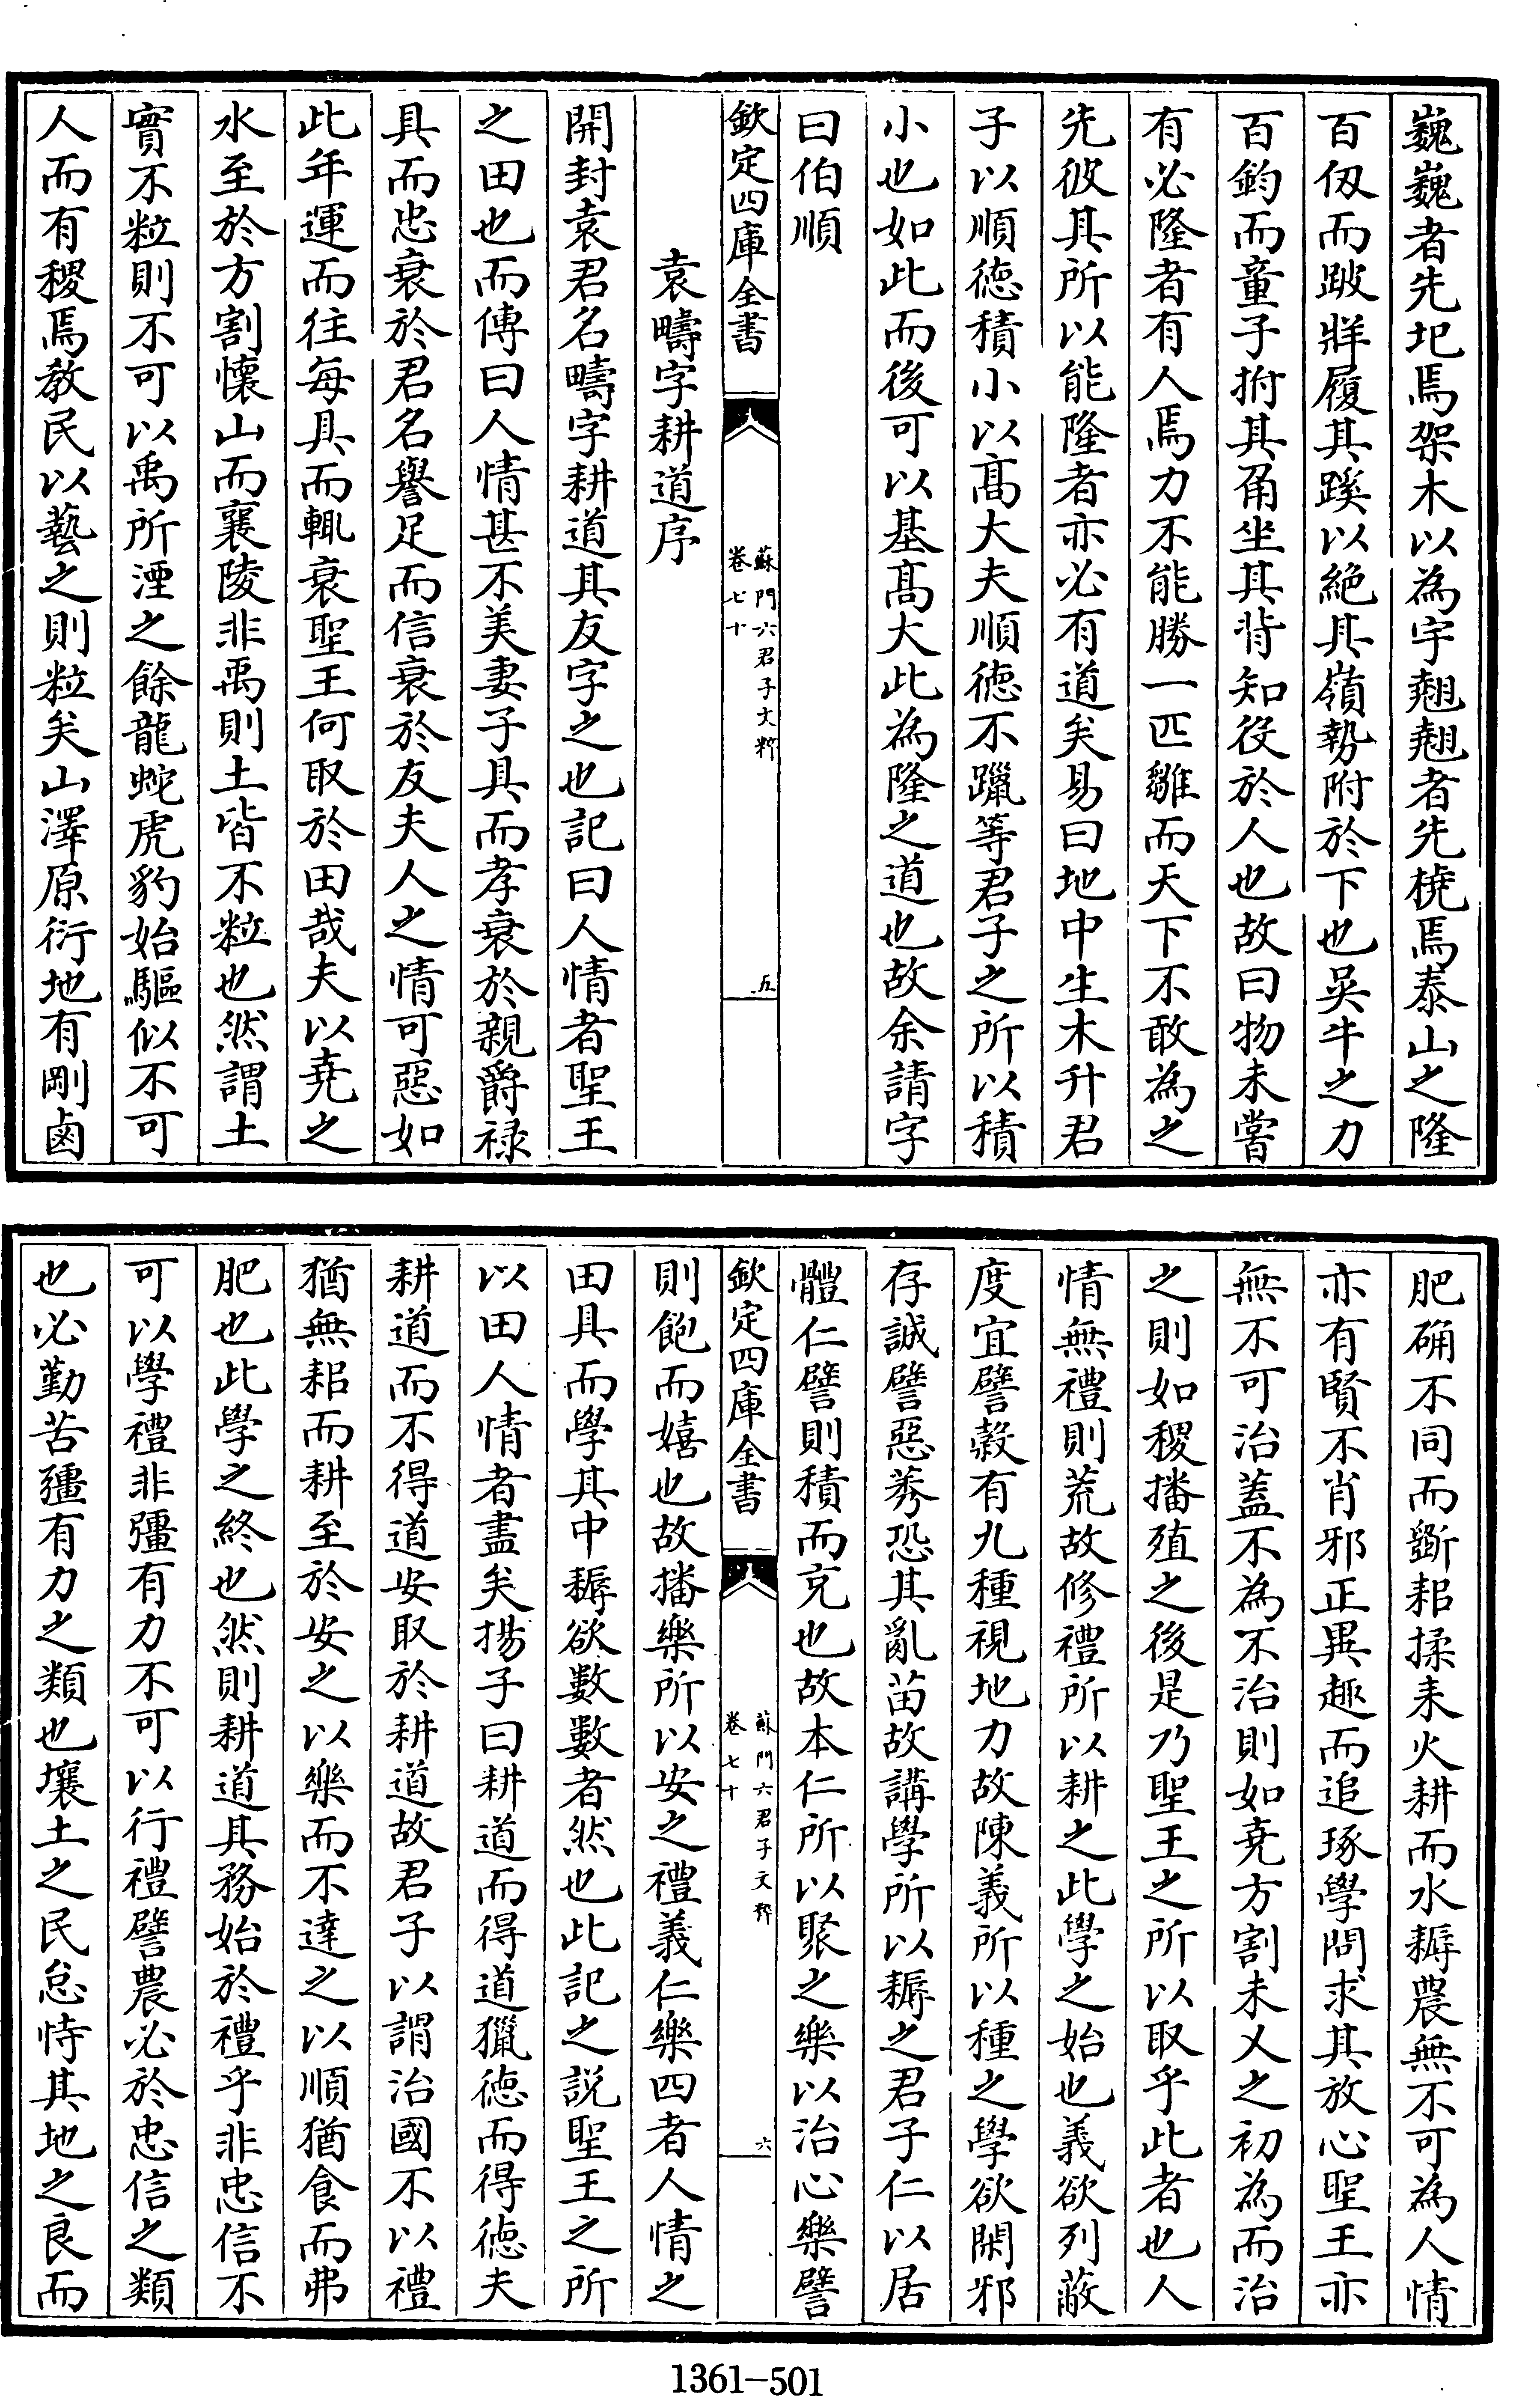 巍巍者先圯焉架木以為宇翹翹者先橈焉泰山之隆
百仭而跛牂履其蹊以絶其嶺勢附於下也吳牛之力
百鈞而童子拊其角坐其背知役於人也故曰物未嘗
有必隆者有人焉力不能勝一匹雛而天下不敢為之
先彼其所以能隆者亦必有道矣易曰地中生木升君
子以順徳積小以髙大夫順徳不躐等君子之所以積
小也如此而後可以基髙大此為隆之道也故余請字
曰伯順
欽定四庫全書
蘇門六君子文粹
卷七十
五
袁疇字耕道序
開封袁君名疇字耕道其友字之也記曰人情者聖王
之田也而傳曰人情甚不美妻子具而孝衰於親爵祿
具而忠衰於君名譽足而信衰於友夫人之情可惡如
此年運而往每具而輒衰聖王何取於田哉夫以堯之
水至於方割懷山而襄陵非禹則土皆不粒也然謂土
實不粒則不可以禹所湮之餘龍蛇虎豹始驅似不可
人而有稷焉教民以藝之則粒矣山澤原衍地有剛鹵
肥确不同而斲耜揉耒火耕而水耨農無不可為人情
亦有賢不肖邪正異趣而追琢學問求其放心聖王亦
無不可治蓋不為不治則如堯方割未乂之初為而治
之則如稷播殖之後是乃聖王之所以取乎此者也人
情無禮則荒故修禮所以耕之此學之始也義欲列蔽
度宜譬穀有九種視地力故陳義所以種之學欲閑邪
存誠譬惡莠恐其亂苗故講學所以耨之君子仁以居
體仁譬則積而充也故本仁所以聚之樂以治心樂譬
欽定四庫全書
蘇門六君子文粹
卷七十
六
則飽而嬉也故播樂所以安之禮義仁樂四者人情之
田具而學其中耨欲數數者然也此記之説聖王之所
以田人情者盡矣揚子曰耕道而得道獵徳而得徳夫
耕道而不得道安取於耕道故君子以謂治國不以禮
猶無耜而耕至於安之以樂而不達之以順猶食而弗
肥也此學之終也然則耕道其務始於禮乎非忠信不
可以學禮非彊有力不可以行禮譬農必於忠信之類
也必勤苦彊有力之類也壤土之民怠恃其地之良而
1361-501